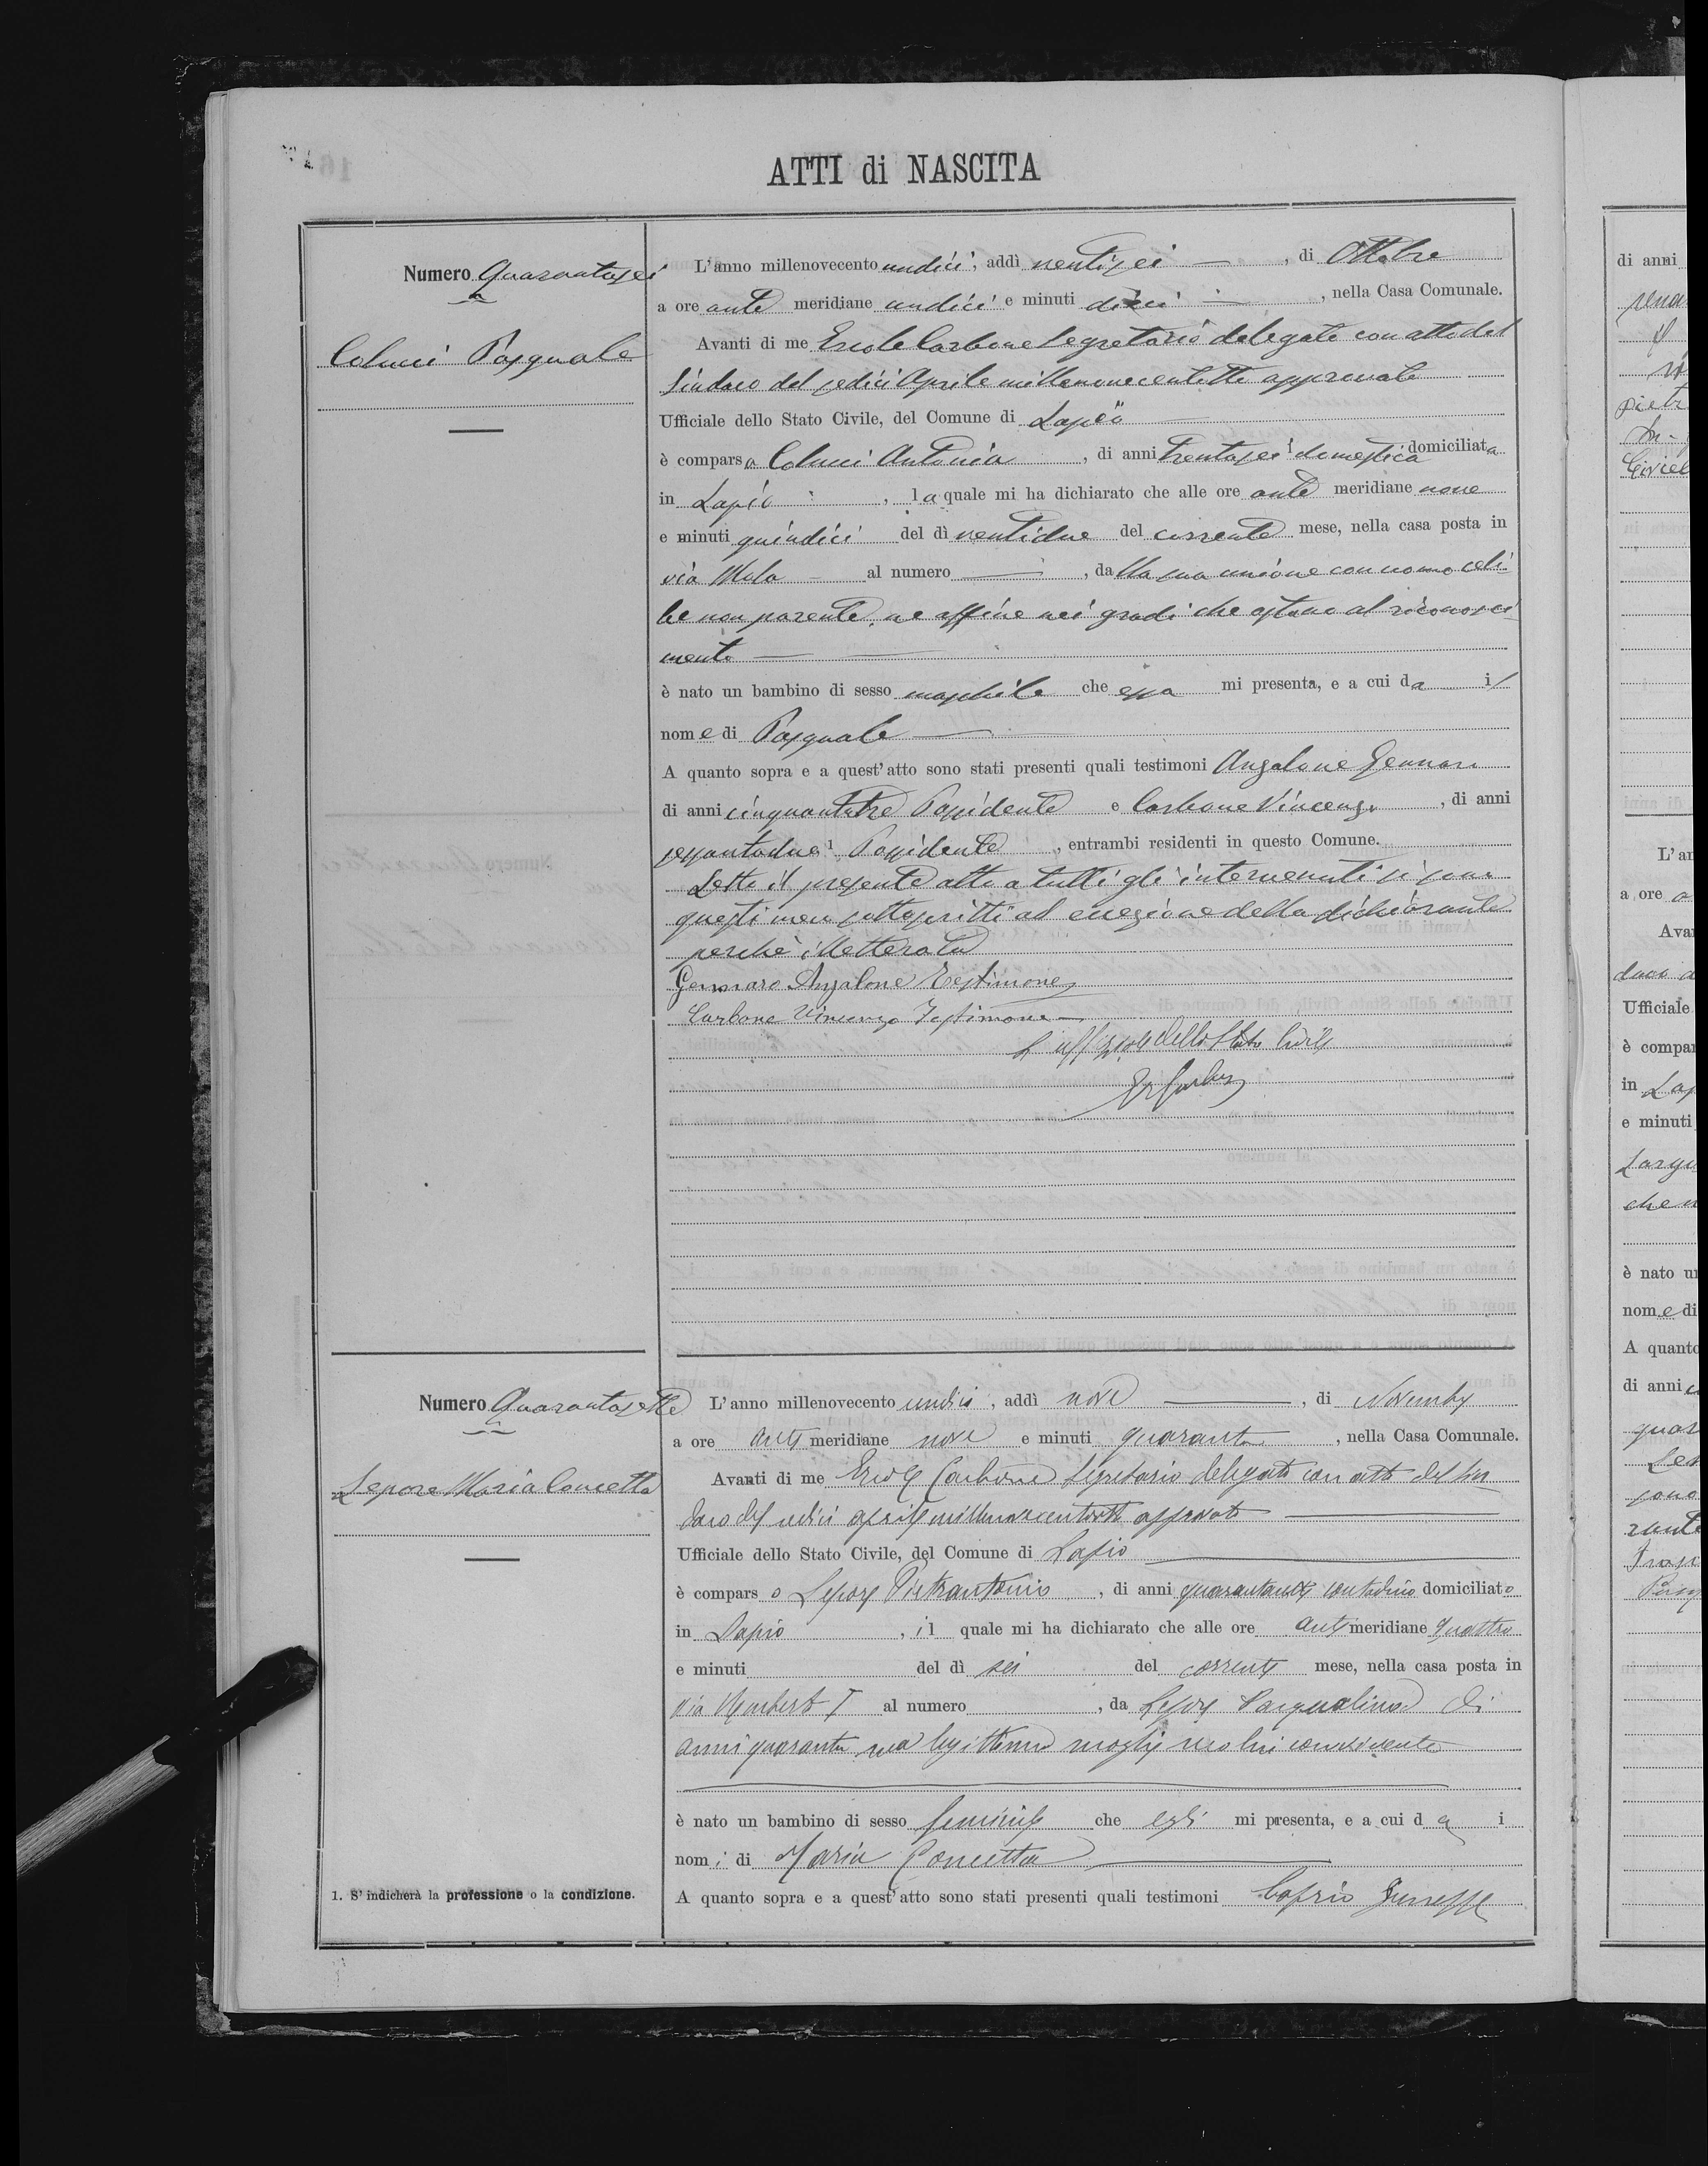 ATTI di NASCITA
Numero Quarantasei
Colucci Pasquale
L'anno millenovecento undici, addì ventisei, di Ottobre
a ore ante meridiane undici e minuti dieci, nella Casa Comunale.
Avanti di me Ercole Carbone Segretario delegato con atto del
Sindaco del sedici Aprile millenovecentotto approvato
Ufficiale dello Stato Civile, del Comune di Lapio
è comparsa Colucci Antonia, di anni trentasei 1 domestica domiciliata
in Lapio, la quale mi ha dichiarato che alle ore ante meridiane nove
e minuti quindici del dì ventidue del corrente mese, nella casa posta in
via Mola al numero , dalla sua unione con uomo celi-
be non parente, ne affine nei gradi che ostano al riconosci-
mento
è nato un bambino di sesso maschile che essa mi presenta, e a cui da il
nome di Pasquale
A quanto sopra e a quest'atto sono stati presenti quali testimoni Anzalone Gennaro
di anni cinquantatre Possidente e Carbone Vincenzo, di anni
sessantadue 1 Possidente, entrambi residenti in questo Comune.
Letto il presente atto a tutti gli intervenuti si sono
questi meco sottoscritti ad eccezione della dichiarante
perchè illetterata
Gennaro Anzalone Testimone
Carbone Vincenzo Testimone
L'uffiziale dello Stato Civile
Numero Quarantasette
Lepore Maria Concetta
L'anno millenovecento undici, addì nove, di Novembre
a ore ante meridiane nove e minuti quaranta, nella Casa Comunale.
Avanti di me Ercole Carbone Segretario delegato con atto del Sin
daco del sedici aprile millenovecentotto approvato
Ufficiale dello Stato Civile, del Comune di Lapio
è comparso Lepore Pietrantonio, di anni contadino domiciliato
in Lapio, il quale mi ha dichiarato che alle ore ante meridiane quattro
e minuti del dì sei del corrente mese, nella casa posta in
via Umberto I al numero , da Lepore Pasqualina di
anni quaranta sua legittima moglie seco lui convivente
è nato un bambino di sesso feminile che egli mi presenta, e a cui da i
nomi di Maria Concetta
A quanto sopra e a quest'atto sono stati presenti quali testimoni Caprio Giuseppe
1. S'indicherà la professione o la condizione.
di anni
L'an
a ore
Avan
Ufficiale
è compar
in Lap
e minuti
è nato un
nome di
A quanto
di anni